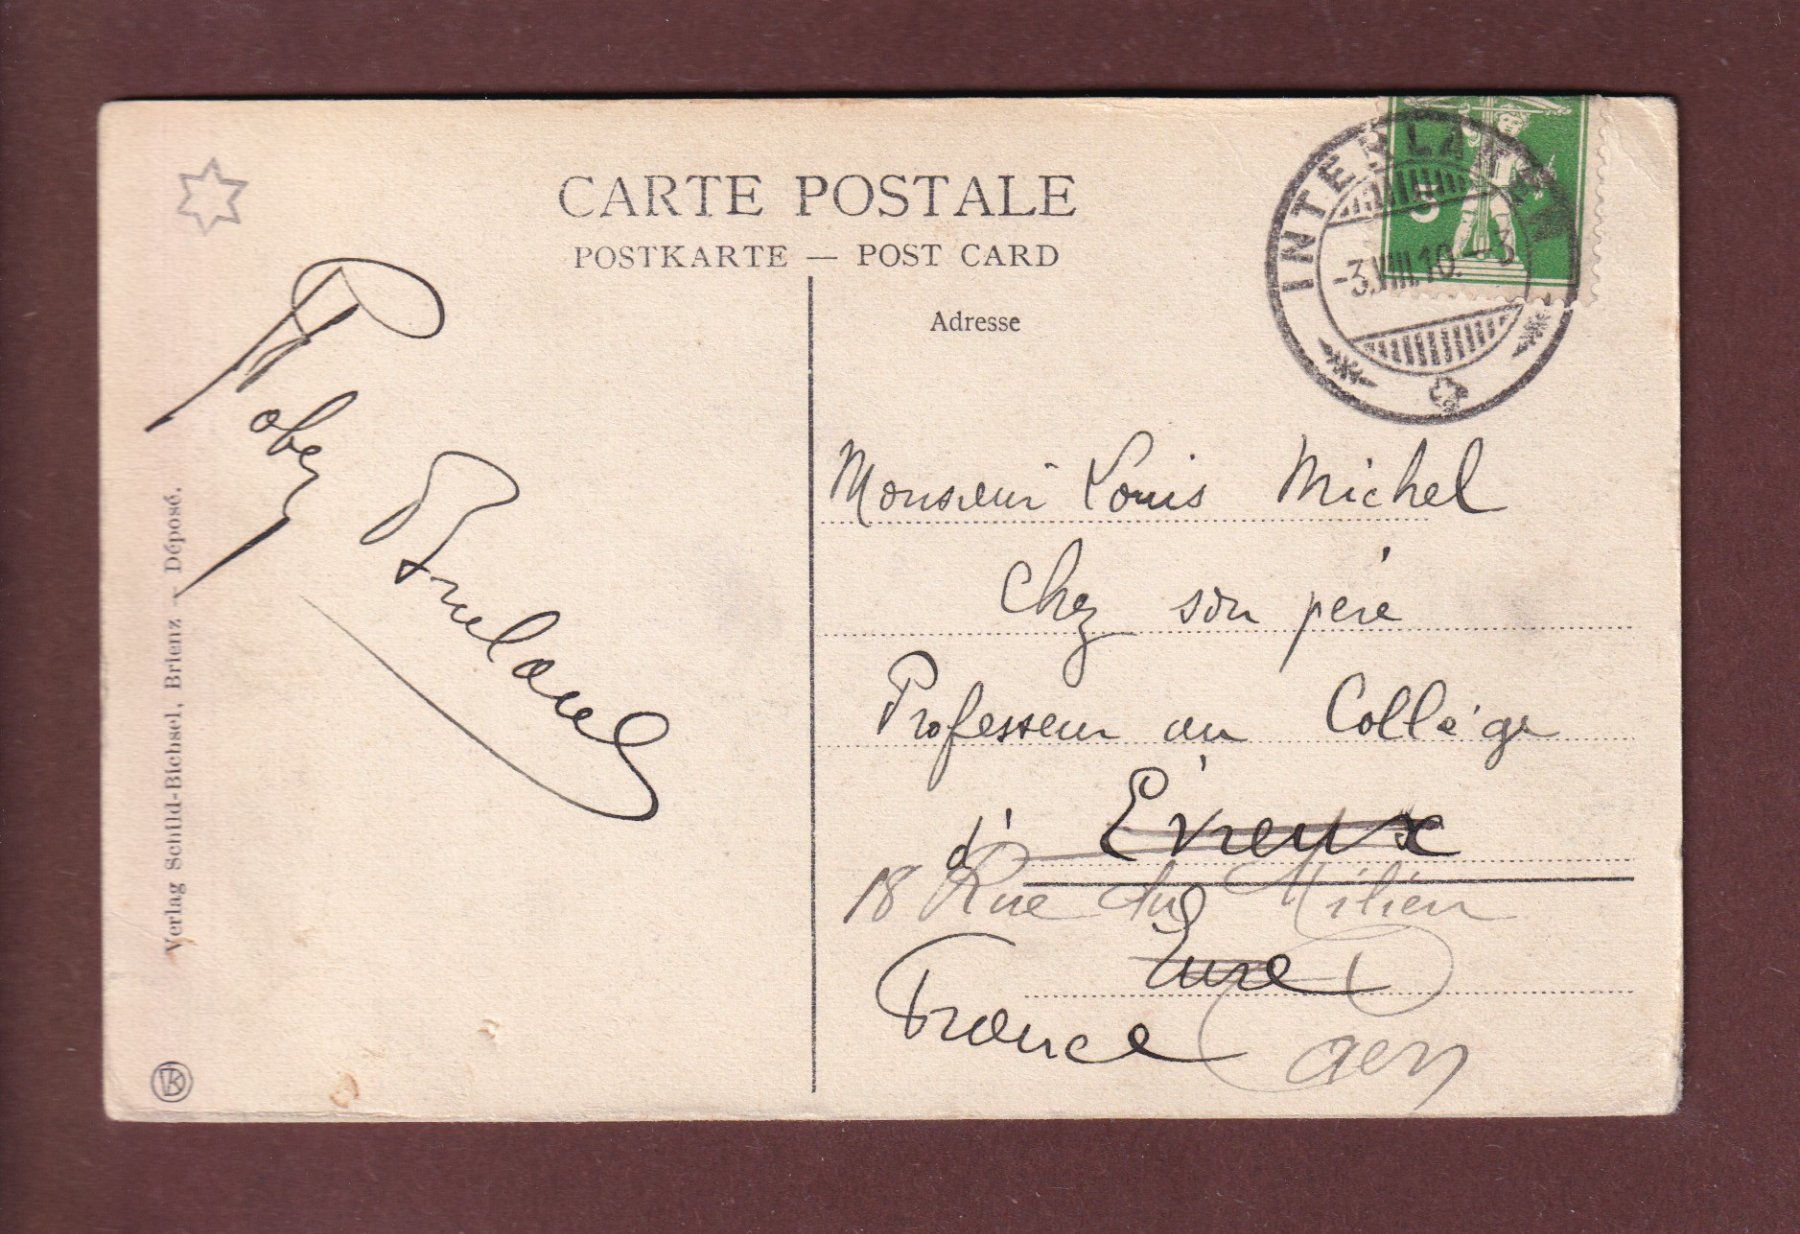 CARTE POSTALE
POSTKARTE — POST CARD
Adresse
INTERLAKEN
-3.VIII.10.-3
5
Monsieur Louis Michel
Chez son père
Professeur au Collège
d'Evreux
18 Rue du Milieu
Eure
France
Caen
Verlag Schild-Bichsel, Brienz - Déposé.